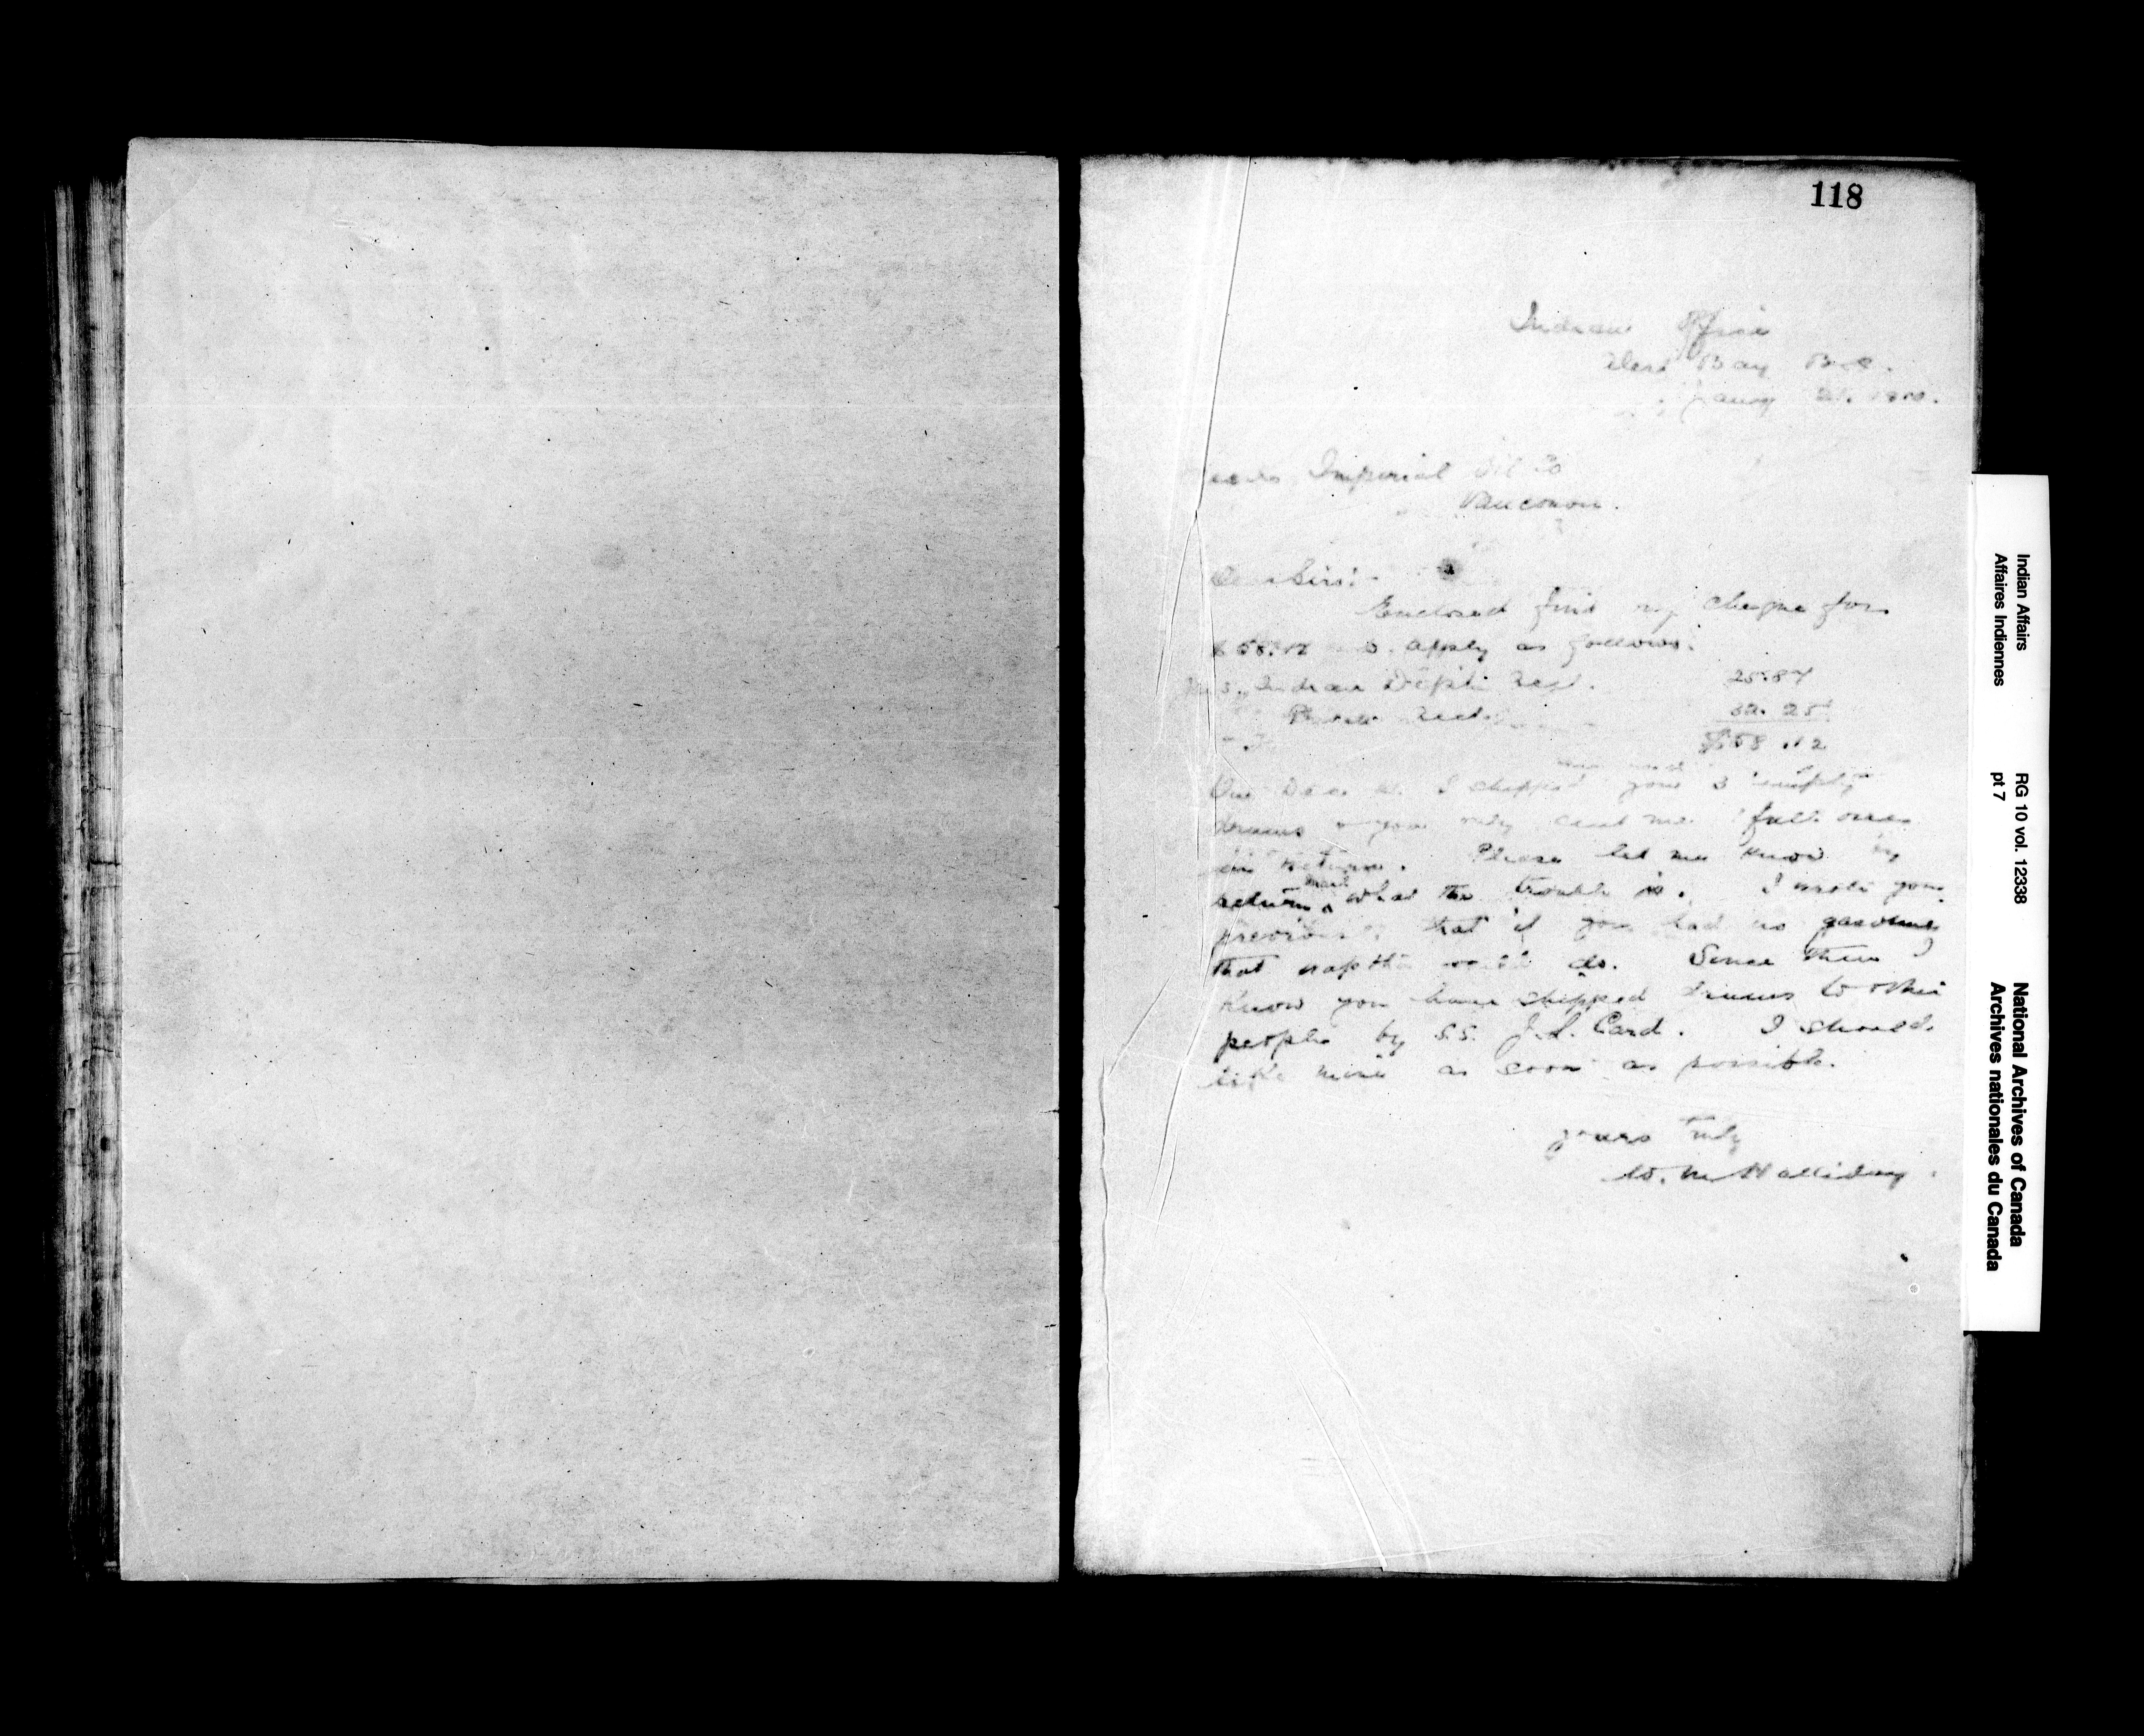 118
Indian Office
Alert Bay B.C.
Imperial Oil Co
Vancouver.
Dear Sirs:-
Enclosed find my cheque for
$58.12 to apply as follows.
Indian Dept. Acct. 25.87
Acct. 32.25
$58.12
On Dec I shipped you 3 empty
drums & you only sent me full ones
in return. Please let me know by
return mail what the trouble is. I wrote you
previous that if you had no gasoline,
that naptha would do. Since then I
know you have shipped drums to other
people by S.S. J.L. Card. I should
like mine as soon as possible.
Yours truly
W. M. Halliday.
Indian Affairs RG 10 vol. 12338 National Archives of Canada
Affaires Indiennes pt 7 Archives nationales du Canada